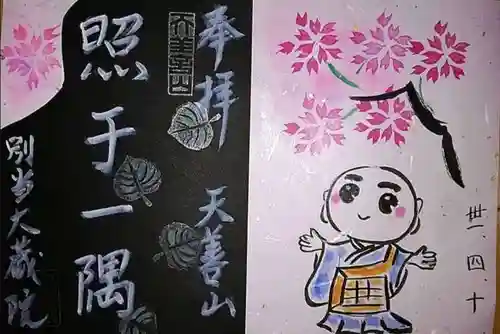 奉拝
天善山
照于一隅
別当大蔵院
卅一.四.十